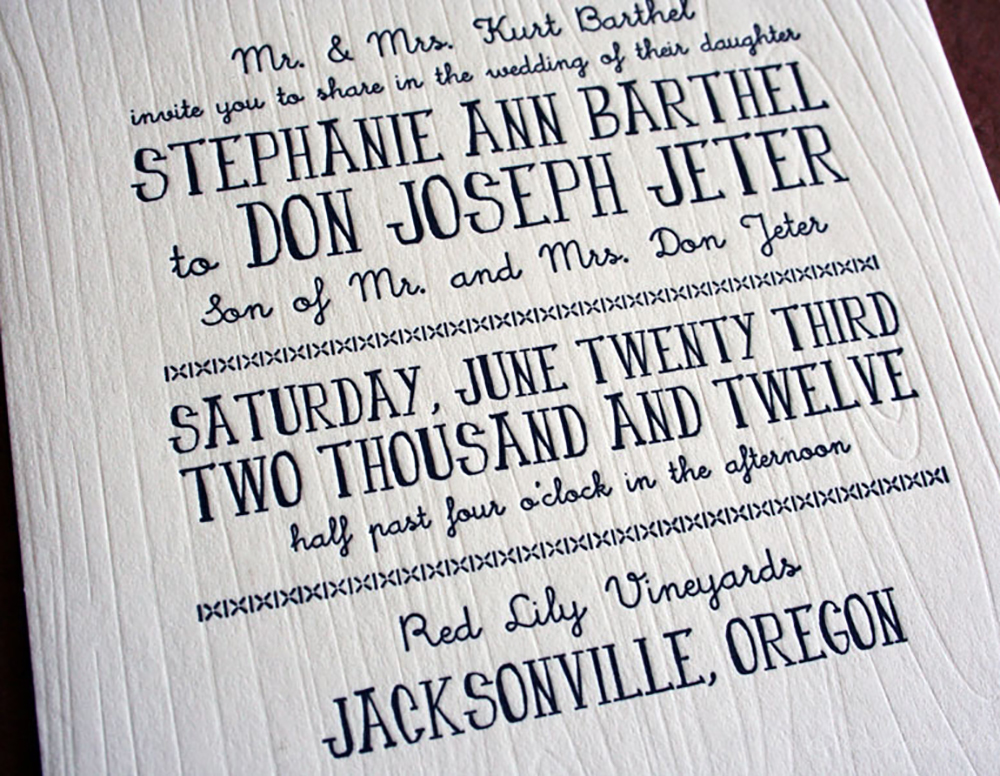 Mr. & Mrs. Kurt Barthel
invite you to share in the wedding of their daughter
STEPHANIE ANN BARTHEL
to DON JOSEPH JETER
Son of Mr. and Mrs. Don Jeter
SATURDAY, JUNE TWENTY THIRD
TWO THOUSAND AND TWELVE
half past four o'clock in the afternoon
Red Lily Vineyards
JACKSONVILLE, OREGON